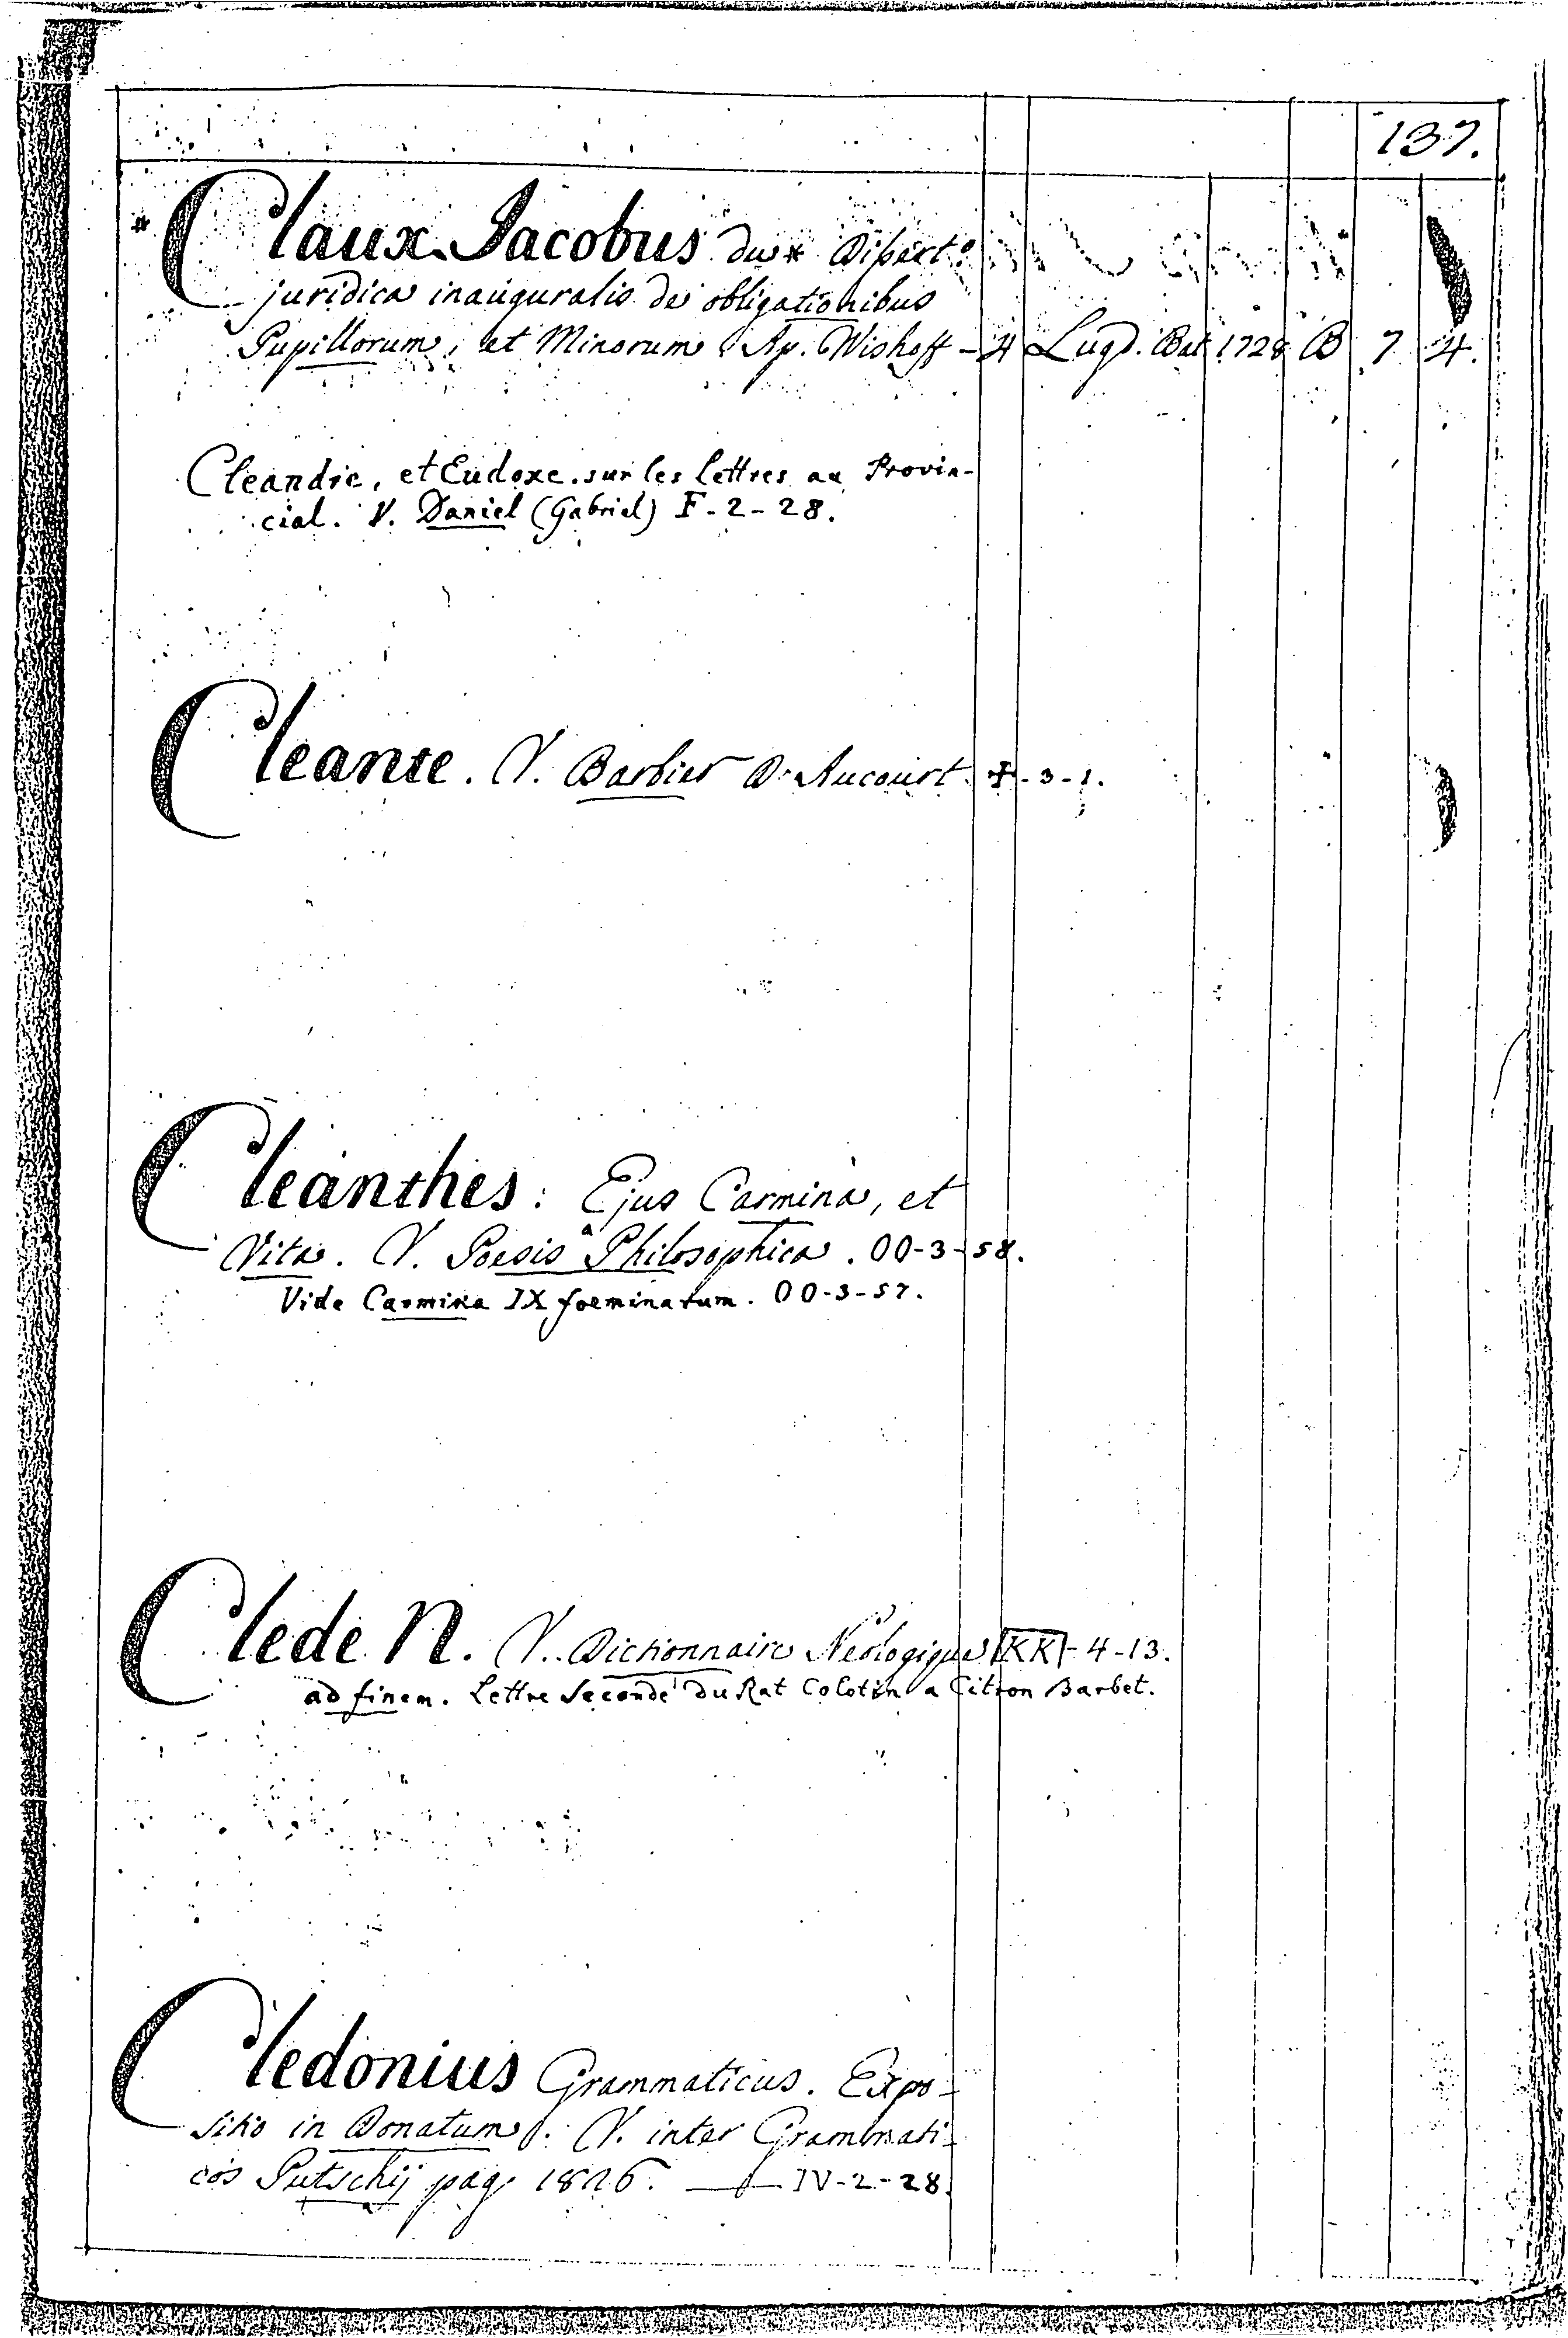 137.
# Claux Jacobus du * Dissert.o
juridica inauguralis de obligationibus
Pupillorum, et Minorum Ap. Wishoff - 4 Lugd. Bat 1728 B 7 4.
Cleandre, et Eudoxe. sur les Lettres au Provin-
cial. V. Daniel (Gabriel) F-2-28.
Cleante. V. Barbier D'Aucourt. F-3-1.
Cleanthes: Ejus Carmina, et
Vita. V. Poesis Philosophica. OO-3-58.
Vide Carmina IX foeminarum. OO-3-57.
Clede N. V. Dictionnaire Néologique KK-4-13.
ad finem. Lettre Seconde du Rat Calotin a Citron Barbet.
Cledonius Grammaticus. Expo-
sitio in Donatum. V. inter Grammati-
cos Putschij pag. 1826. IV-2-28.